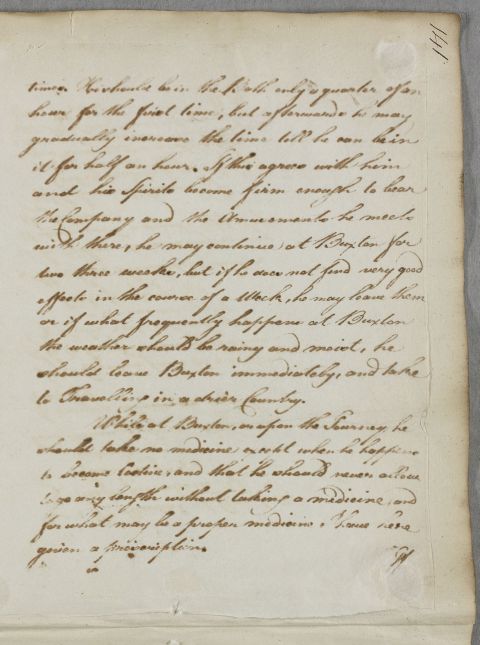 141
time. He should be in the Bath only a quarter of an
hour for the first time, but afterwards he may
gradually increase the time till he can be in
it for half an hour. If this agrees with him
and his Spirits become firm enough to bear
the Company and the Amusements he meets
with there, he may continue at Buxton for
two three weeks, but if he does not find very good
effects in the course of a Week, he may leave them
or if what frequently happens at Buxton
the weather should be rainy and moist, he
should leave Buxton immediately, and take
to Travelling in a drier Country.
While at Buxton, or upon the Journey, he
should take no medicine except when he happens
to become Costive, and that he should never allow
to go any length without taking a medicine, and
for what may be a proper medicine. I have here
given a prescription.